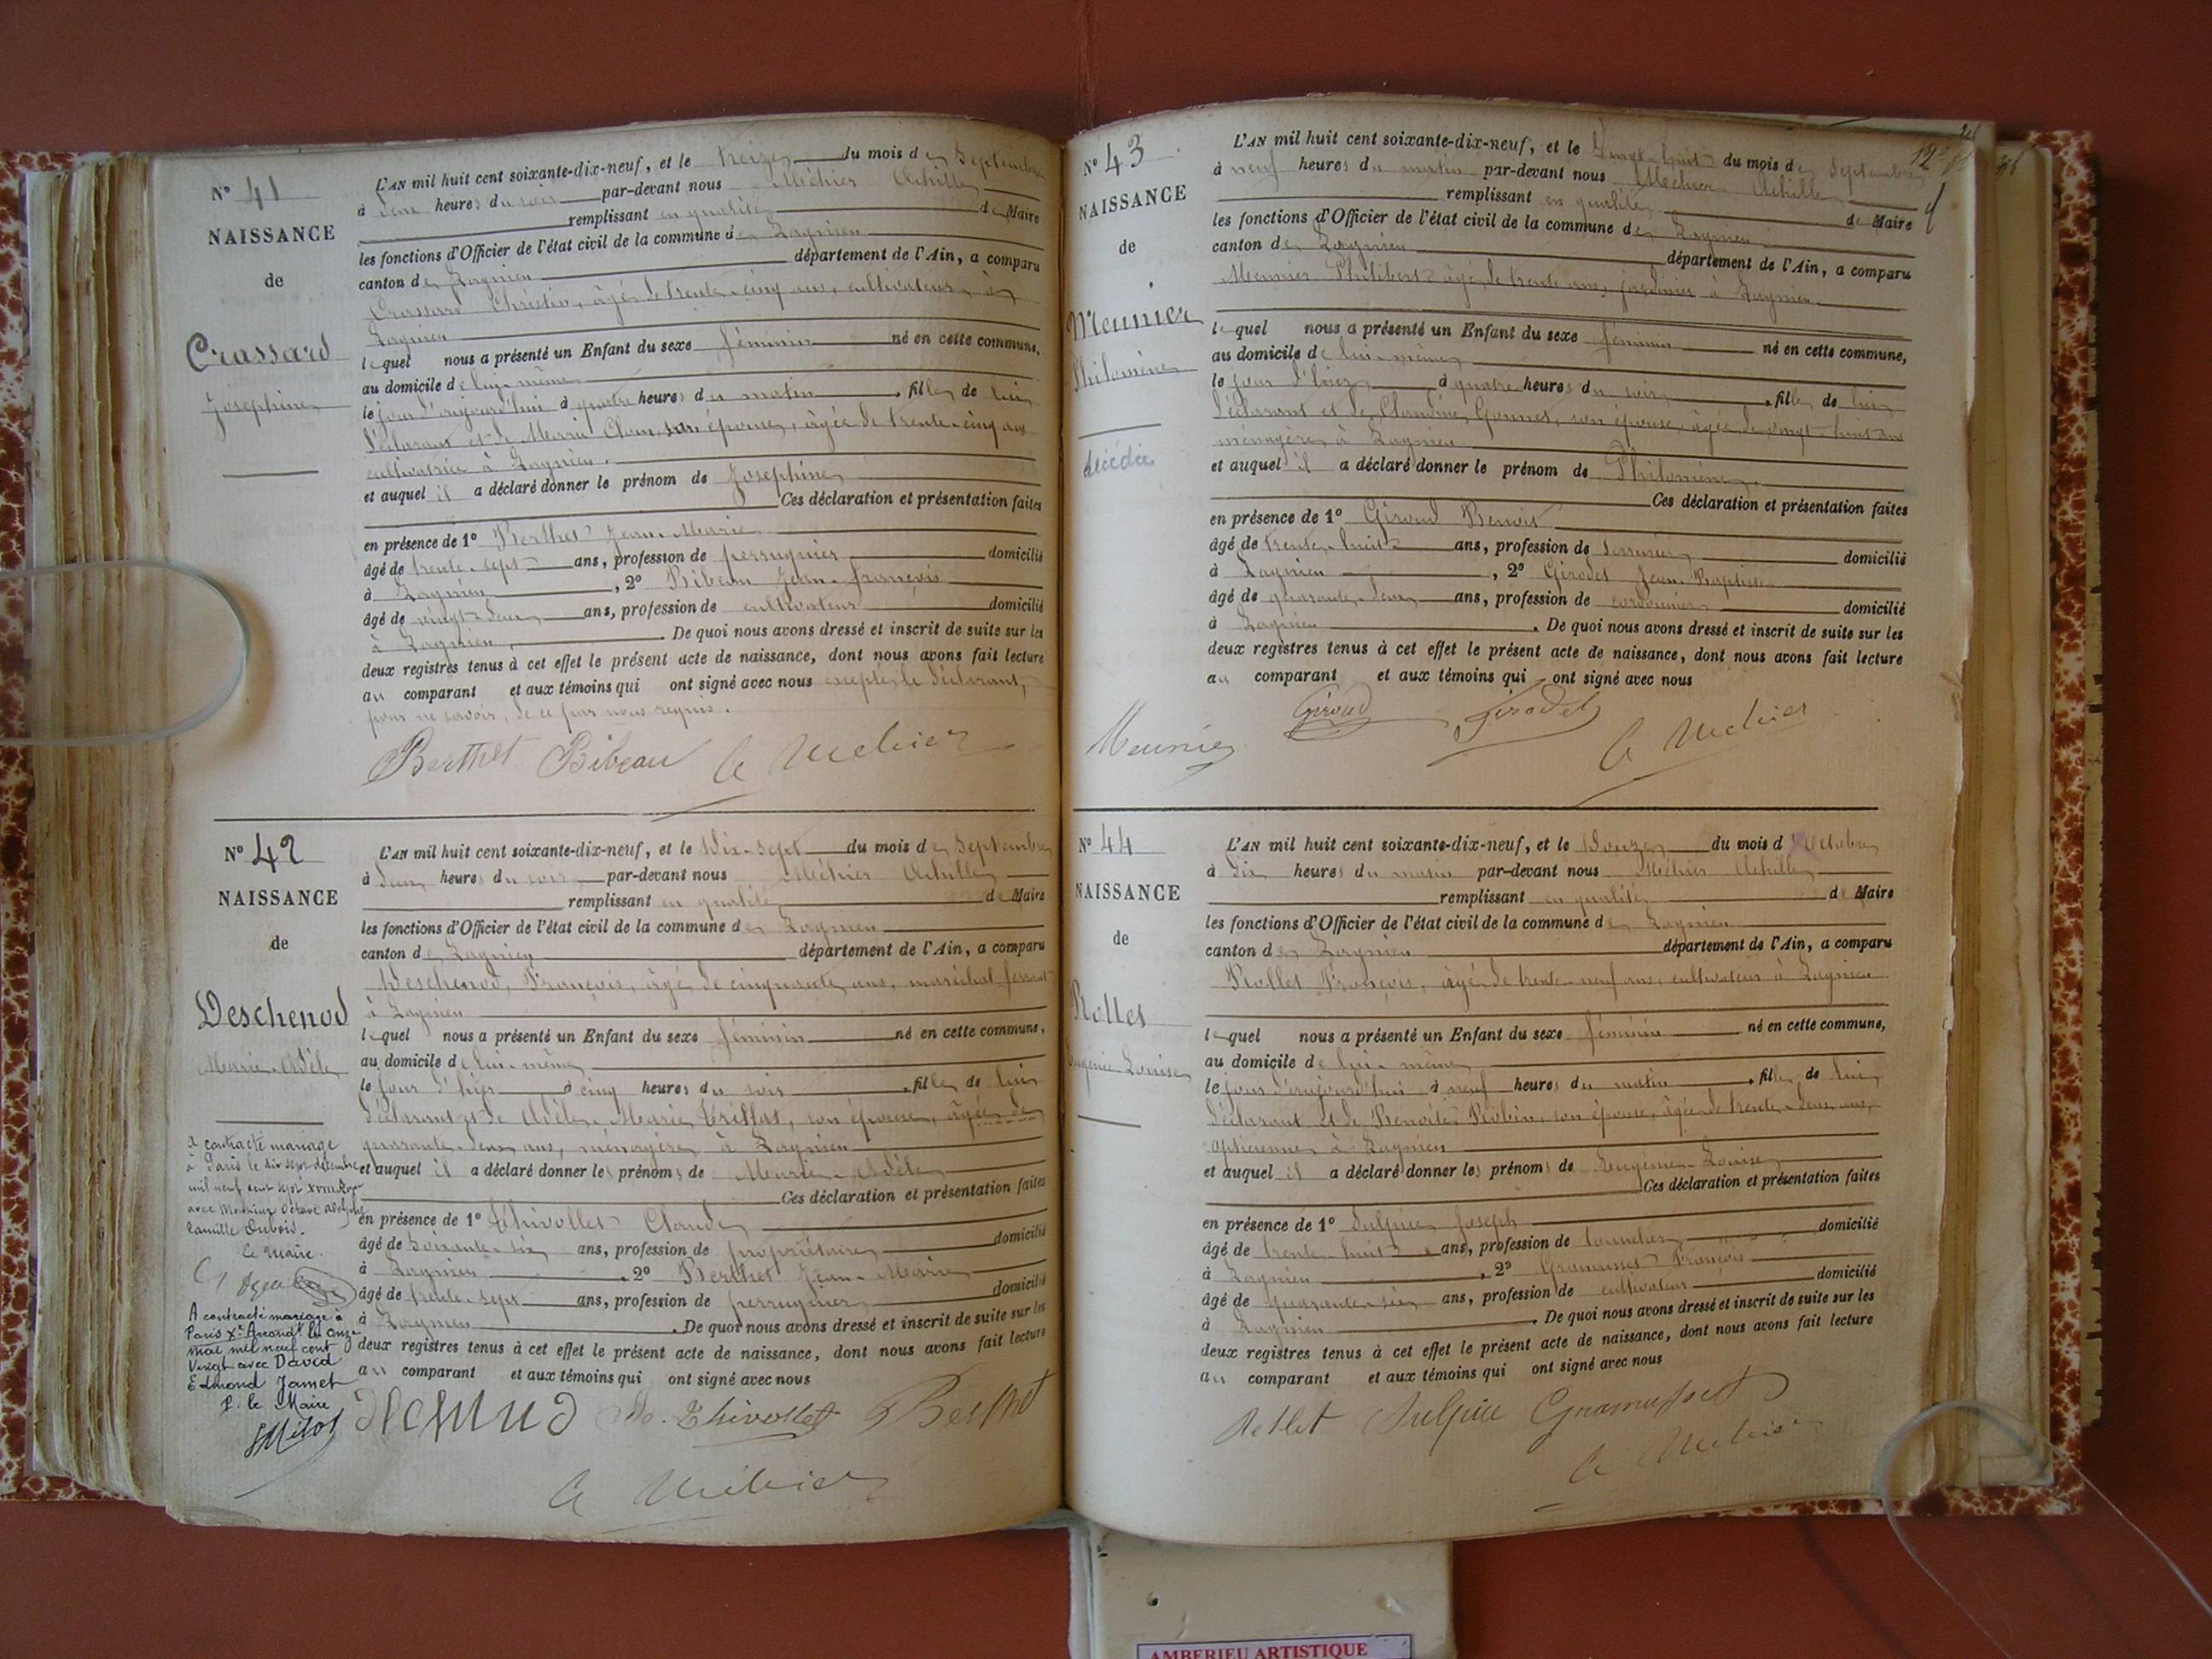 N° 41
NAISSANCE
de
Crassard
Joséphine
L'AN mil huit cent soixante-dix-neuf, et le treize du mois de Septembre
à deux heures du soir par-devant nous Méhier Achille
remplissant en qualité de Maire
les fonctions d'Officier de l'état civil de la commune de Lagnieu
canton de Lagnieu département de l'Ain, a comparu
Crassard Christin, âgé de trente-cinq ans, cultivateur à
Lagnieu
lequel nous a présenté un Enfant du sexe féminin né en cette commune,
au domicile de lui-même
le jour d'aujourd'hui à quatre heures du matin, fille de lui
déclarant et de Marie son épouse, âgée de trente-cinq ans
cultivatrice à Lagnieu.
et auquel il a déclaré donner le prénom de Joséphine
Ces déclaration et présentation faites
en présence de 1° Berthet Jean-Marie
âgé de trente-sept ans, profession de perruquier domicilié
à Lagnieu, 2° Bibeau Jean-François
âgé de vingt-deux ans, profession de cultivateur domicilié
à Lagnieu. De quoi nous avons dressé et inscrit de suite sur les
deux registres tenus à cet effet le présent acte de naissance, dont nous avons fait lecture
au comparant et aux témoins qui ont signé avec nous excepté le déclarant,
pour ne savoir, de ce par nous requis.
Berthet Bibeau A Méhier
N° 42
NAISSANCE
de
Deschenod
Marie-Adèle
a contracté mariage
à Paris le dix sept décembre
mil neuf cent sept XVIII
avec Monsieur Octave Adolphe
Camille Dubois.
Le Maire
A contracté mariage à
Paris Xe Arrondt le onze
mai mil neuf cent
vingt avec David
Edmond Jamet
P. le Maire
L'AN mil huit cent soixante-dix-neuf, et le dix-sept du mois de Septembre
à deux heures du soir par-devant nous Méhier Achille
remplissant en qualité de Maire
les fonctions d'Officier de l'état civil de la commune de Lagnieu
canton de Lagnieu département de l'Ain, a comparu
Deschenod, François, âgé de cinquante ans, maréchal ferrant
à Lagnieu
lequel nous a présenté un Enfant du sexe féminin né en cette commune,
au domicile de lui-même
le jour d'hier à cinq heures du soir, fille de lui
déclarant et de Adèle-Marie Trillat, son épouse, âgée de
quarante-deux ans, ménagère à Lagnieu
et auquel il a déclaré donner les prénoms de Marie-Adèle
Ces déclaration et présentation faites
en présence de 1° Thivollet Claude
âgé de soixante-six ans, profession de propriétaire domicilié
à Lagnieu, 2° Berthet Jean-Marie
âgé de trente-sept ans, profession de perruquier domicilié
à Lagnieu. De quoi nous avons dressé et inscrit de suite sur les
deux registres tenus à cet effet le présent acte de naissance, dont nous avons fait lecture
au comparant et aux témoins qui ont signé avec nous
Thivollet Berthet
A Méhier
N° 43
NAISSANCE
de
Meunier
Philomène
décédée
L'AN mil huit cent soixante-dix-neuf, et le vingt-huit du mois de Septembre
à neuf heures du matin par-devant nous Méhier Achille
remplissant en qualité de Maire
les fonctions d'Officier de l'état civil de la commune de Lagnieu
canton de Lagnieu département de l'Ain, a comparu
Meunier Philibert âgé de trente ans, jardinier à Lagnieu
lequel nous a présenté un Enfant du sexe féminin né en cette commune,
au domicile de lui-même
le jour d'hier à quatre heures du soir, fille de lui
déclarant et de Claudine Gonnet, son épouse, âgée de vingt-huit ans
ménagère à Lagnieu
et auquel il a déclaré donner le prénom de Philomène.
Ces déclaration et présentation faites
en présence de 1° Giroud Benoit
âgé de trente-huit ans, profession de serrurier domicilié
à Lagnieu, 2° Girodet Jean-Baptiste
âgé de quarante-deux ans, profession de cordonnier domicilié
à Lagnieu. De quoi nous avons dressé et inscrit de suite sur les
deux registres tenus à cet effet le présent acte de naissance, dont nous avons fait lecture
au comparant et aux témoins qui ont signé avec nous
Meunier Giroud Girodet A Méhier
N° 44
NAISSANCE
de
Rollet
Eugénie-Louise
L'AN mil huit cent soixante-dix-neuf, et le Douze du mois d'Octobre
à dix heures du matin par-devant nous Méhier Achille
remplissant en qualité de Maire
les fonctions d'Officier de l'état civil de la commune de Lagnieu
canton de Lagnieu département de l'Ain, a comparu
Rollet François, âgé de trente-neuf ans, cultivateur à Lagnieu
lequel nous a présenté un Enfant du sexe féminin né en cette commune,
au domicile de lui-même
le jour d'aujourd'hui à neuf heures du matin, fille de lui
déclarant et de Benoîte Robin, son épouse, âgée de trente-deux ans,
à Lagnieu
et auquel il a déclaré donner les prénoms de Eugénie-Louise
Ces déclaration et présentation faites
en présence de 1° Sulpice Joseph
âgé de trente-huit ans, profession de tonnelier domicilié
à Lagnieu, 2° Gramusset François
âgé de quarante-six ans, profession de cultivateur domicilié
à Lagnieu. De quoi nous avons dressé et inscrit de suite sur les
deux registres tenus à cet effet le présent acte de naissance, dont nous avons fait lecture
au comparant et aux témoins qui ont signé avec nous
Rollet Sulpice Gramusset
A Méhier
AMBERIEU ARTISTIQUE